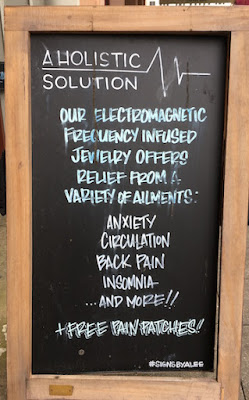 A HOLISTIC
SOLUTION
OUR ELECTROMAGNETIC
FREQUENCY INFUSED
JEWELRY OFFERS
RELIEF FROM A
VARIETY OF AILMENTS:
ANXIETY
CIRCULATION
BACK PAIN
INSOMNIA
...AND MORE!!
+ FREE PAIN PATCHES!
#SIGNSBYALEE